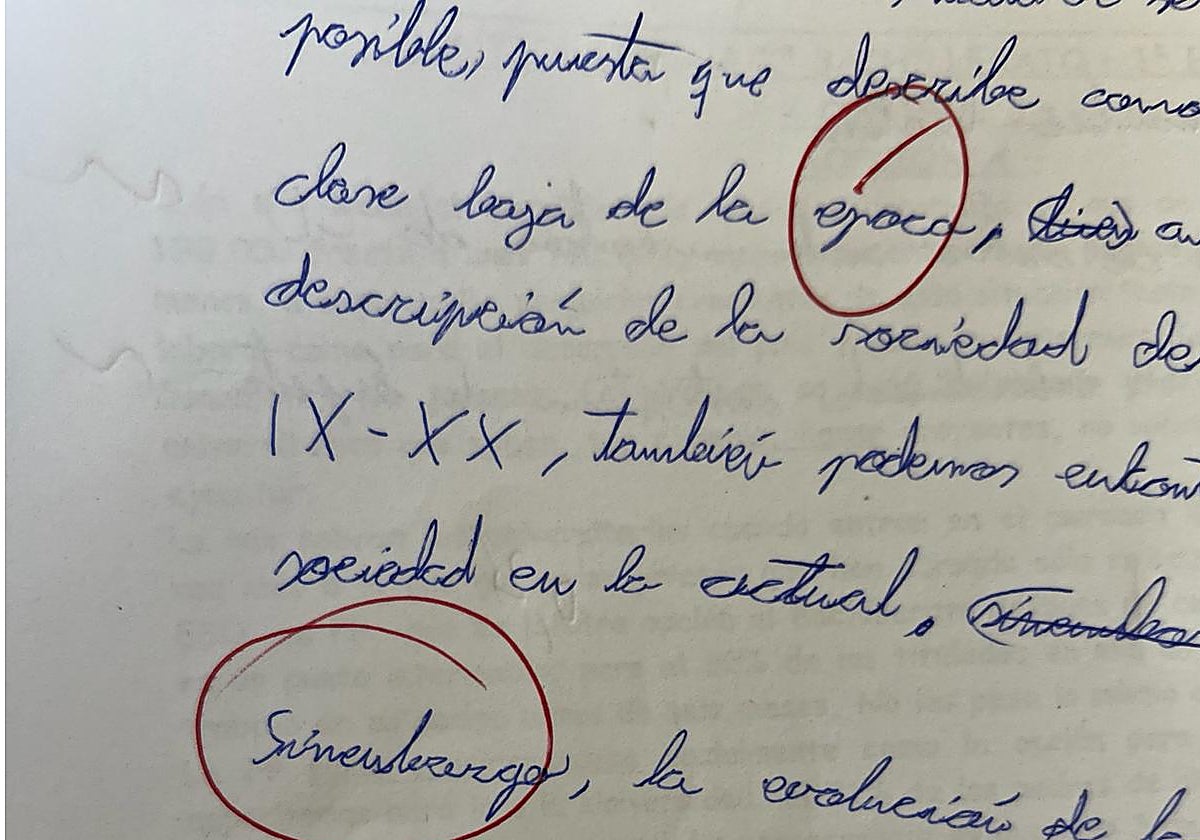 posible, puesta que describe como
clase baja de la epoca,
descripción de la sociedad de
IX-XX, también podemos
sociedad en la actual,
Sinembargo, la evolución de l